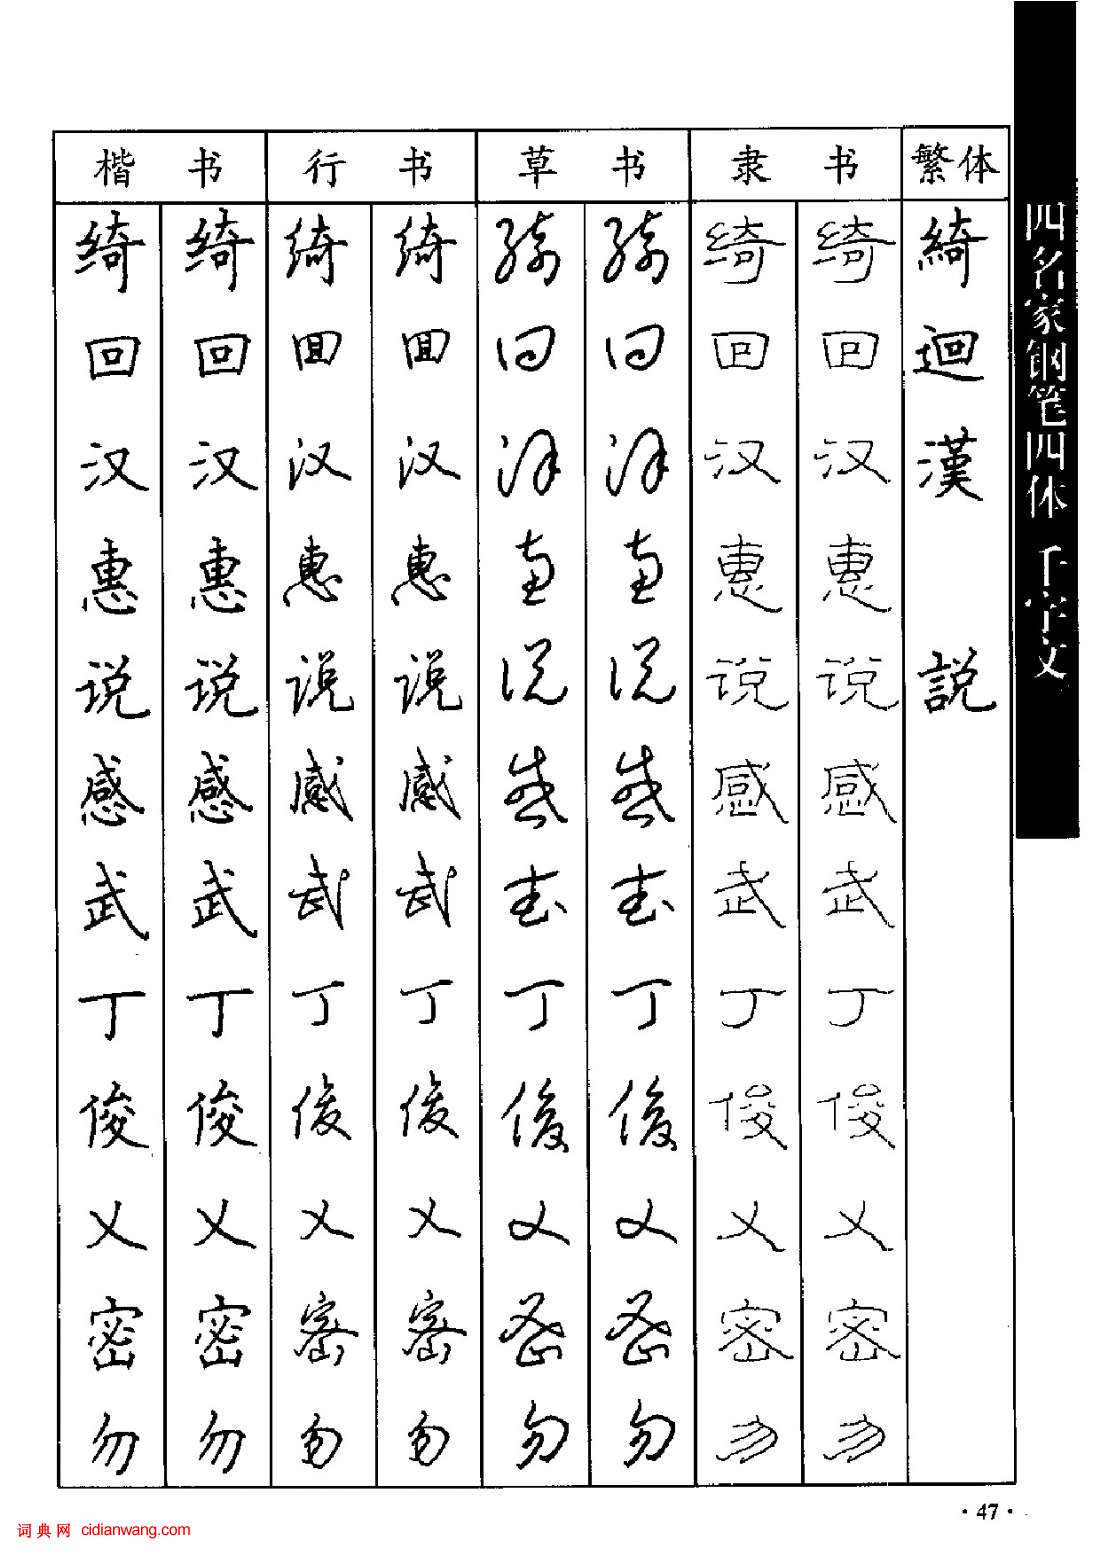 楷书 行书 草书 隶书 繁体
绮 绮 绮 绮 绮 绮 绮 绮 綺
回 回 回 回 回 回 回 回 迴
汉 汉 汉 汉 汉 汉 汉 汉 漢
惠 惠 惠 惠 惠 惠 惠 惠
说 说 说 说 说 说 说 说 説
感 感 感 感 感 感 感 感
武 武 武 武 武 武 武 武
丁 丁 丁 丁 丁 丁 丁 丁
俊 俊 俊 俊 俊 俊 俊 俊
乂 乂 乂 乂 乂 乂 乂 乂
密 密 密 密 密 密 密 密
勿 勿 勿 勿 勿 勿 勿 勿
四名家钢笔四体 千字文
·47·
词典网 cidianwang.com